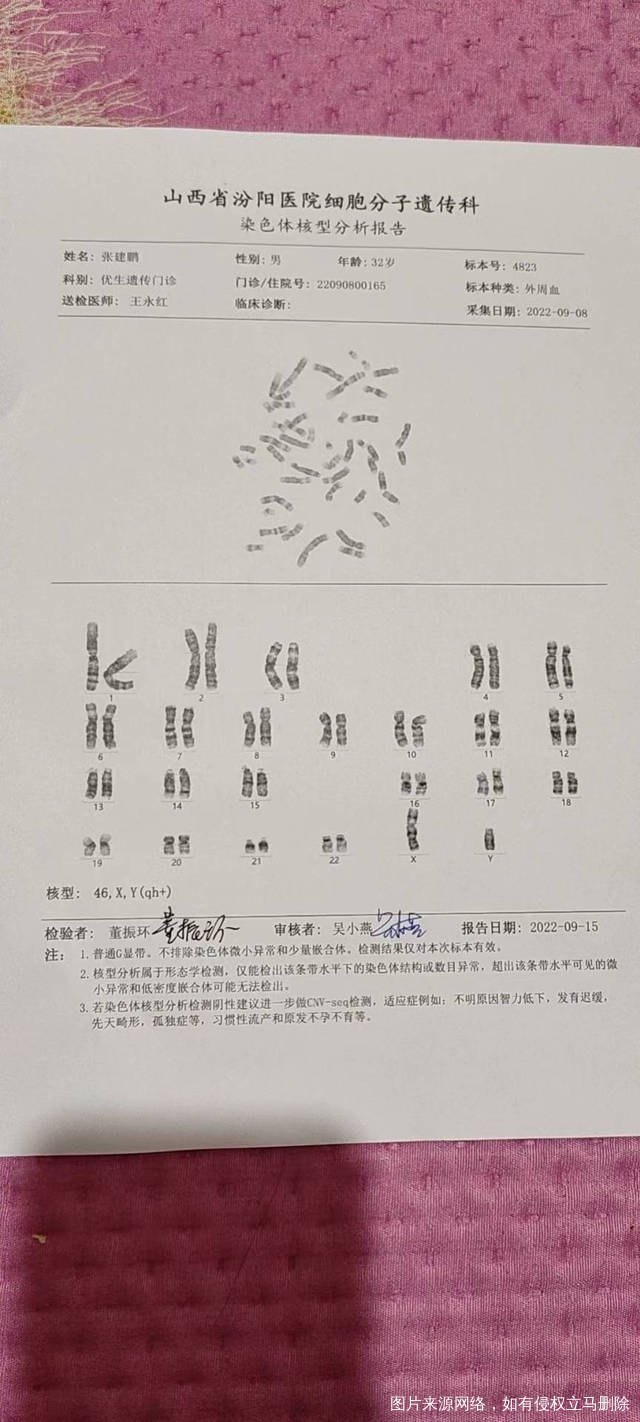 山西省汾阳医院细胞分子遗传科
染色体核型分析报告
姓名: 张建鹏 性别: 男 年龄: 32岁 标本号: 4823
科别: 优生遗传门诊 门诊/住院号: 22090800165 标本种类: 外周血
送检医师: 王永红 临床诊断: 采集日期: 2022-09-08
1 2 3 4 5
6 7 8 9 10 11 12
13 14 15 16 17 18
19 20 21 22 X Y
核型: 46,X,Y(qh+)
检验者: 董振环 董振环 审核者: 吴小燕 报告日期: 2022-09-15
注: 1.普通G显带。不排除染色体微小异常和少量嵌合体。检测结果仅对本次标本有效。
2.核型分析属于形态学检测，仅能检出该条带水平下的染色体结构或数目异常，超出该条带水平可见的微
小异常和低密度嵌合体可能无法检出。
3.若染色体核型分析检测阴性建议进一步做CNV-seq检测，适应症例如：不明原因智力低下，发育迟缓，
先天畸形，孤独症等，习惯性流产和原发不孕不育等。
图片来源网络，如有侵权立马删除